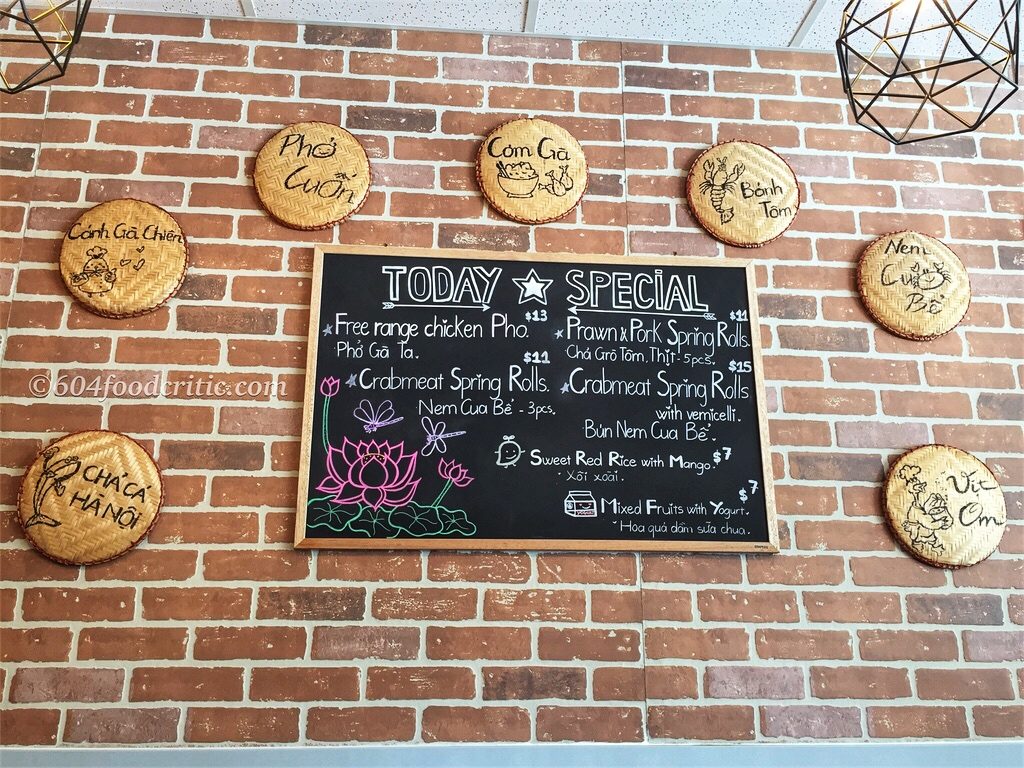 Phở
Cuốn
Cơm Gà
Bánh
Tôm
Cánh Gà Chiên
Nem
Cua
Bể
CHẢ CÁ
HÀ NỘI
Vịt
Om
TODAY SPECIAL
Free range chicken Pho. $13
Phở Gà Ta.
Crabmeat Spring Rolls. $11
Nem Cua Bể - 3pcs.
Prawn x Pork Spring Rolls. $11
Chả Giò Tôm, Thịt - 5pcs.
Crabmeat Spring Rolls $15
with vernicelli.
Bún Nem Cua Bể.
Sweet Red Rice with Mango. $7
Xôi xoài.
Mixed Fruits with Yogurt. $7
Hoa quả dầm sữa chua.
©604foodcritic.com